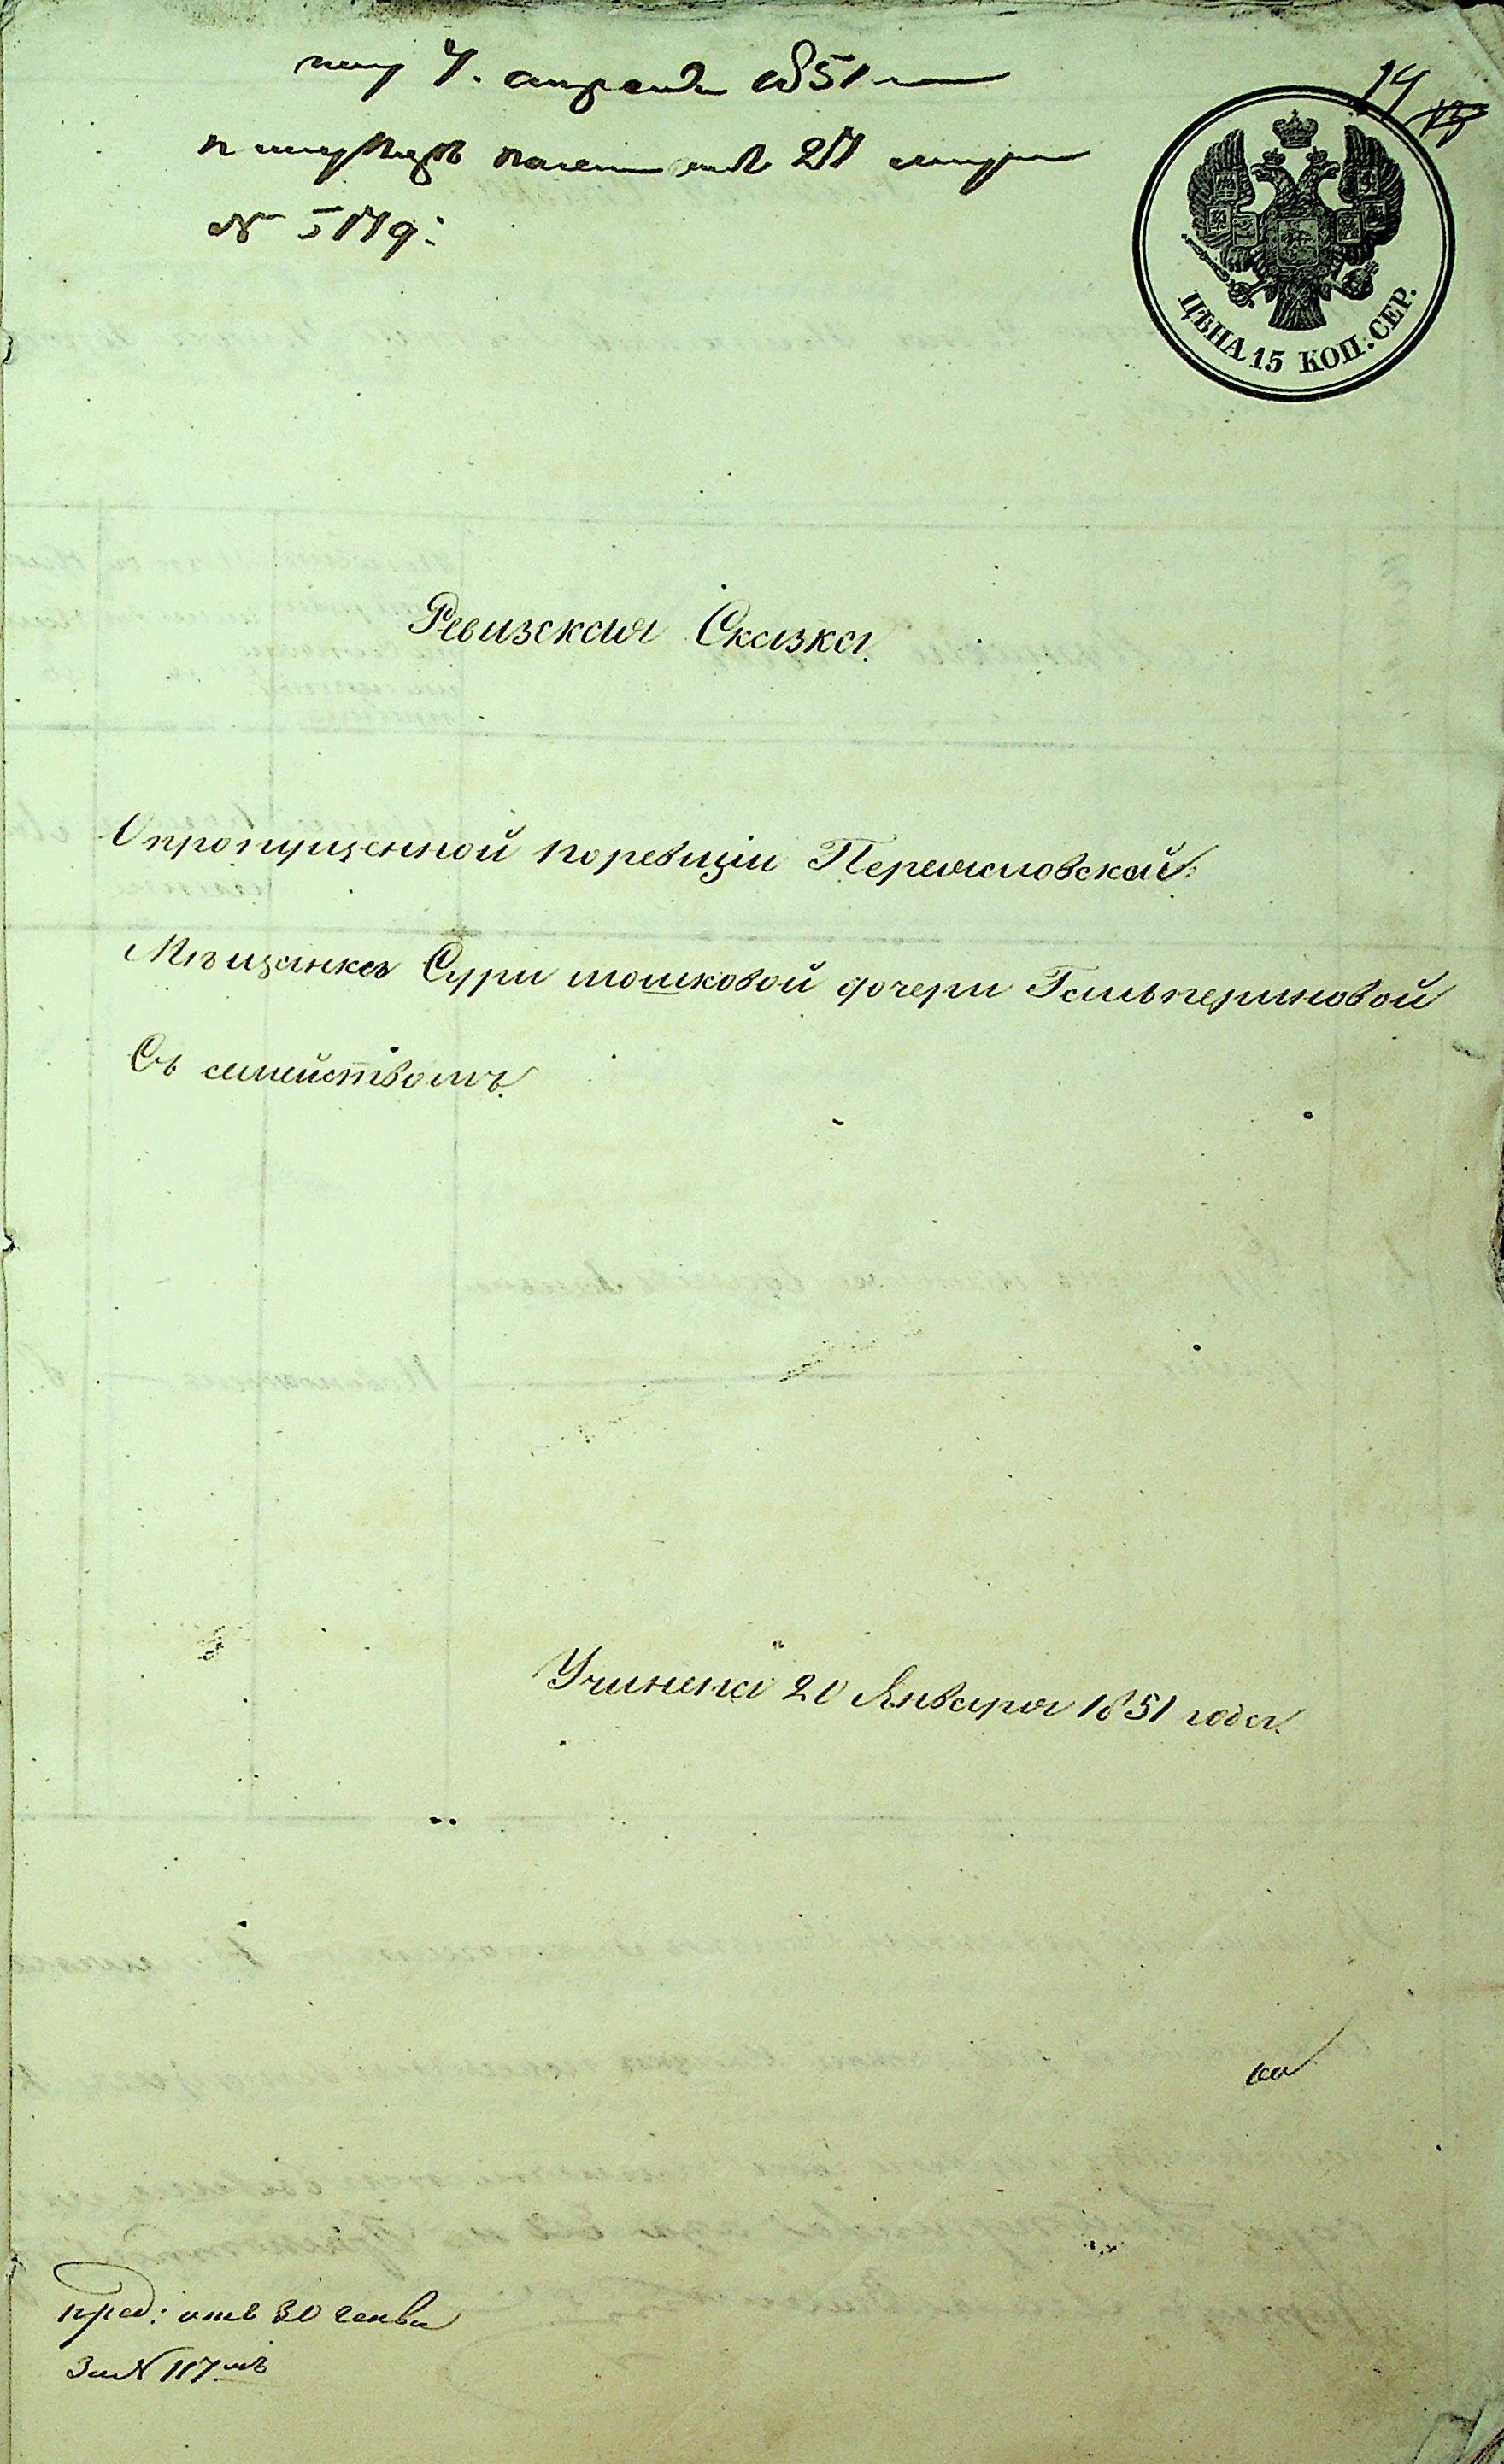 7. апреля 1851
27
14
№ 5179:
ЦѢНА 15 КОП: СЕР.
Ревизская Сказка.
Опропущенной поревизіи Переясловской
Мѣщанке Сури мошковой дочери Гальпериновой
Съ семействомъ.
Учинена 20 Января 1851 года.
пред: отъ 30 генва
За № 117мъ